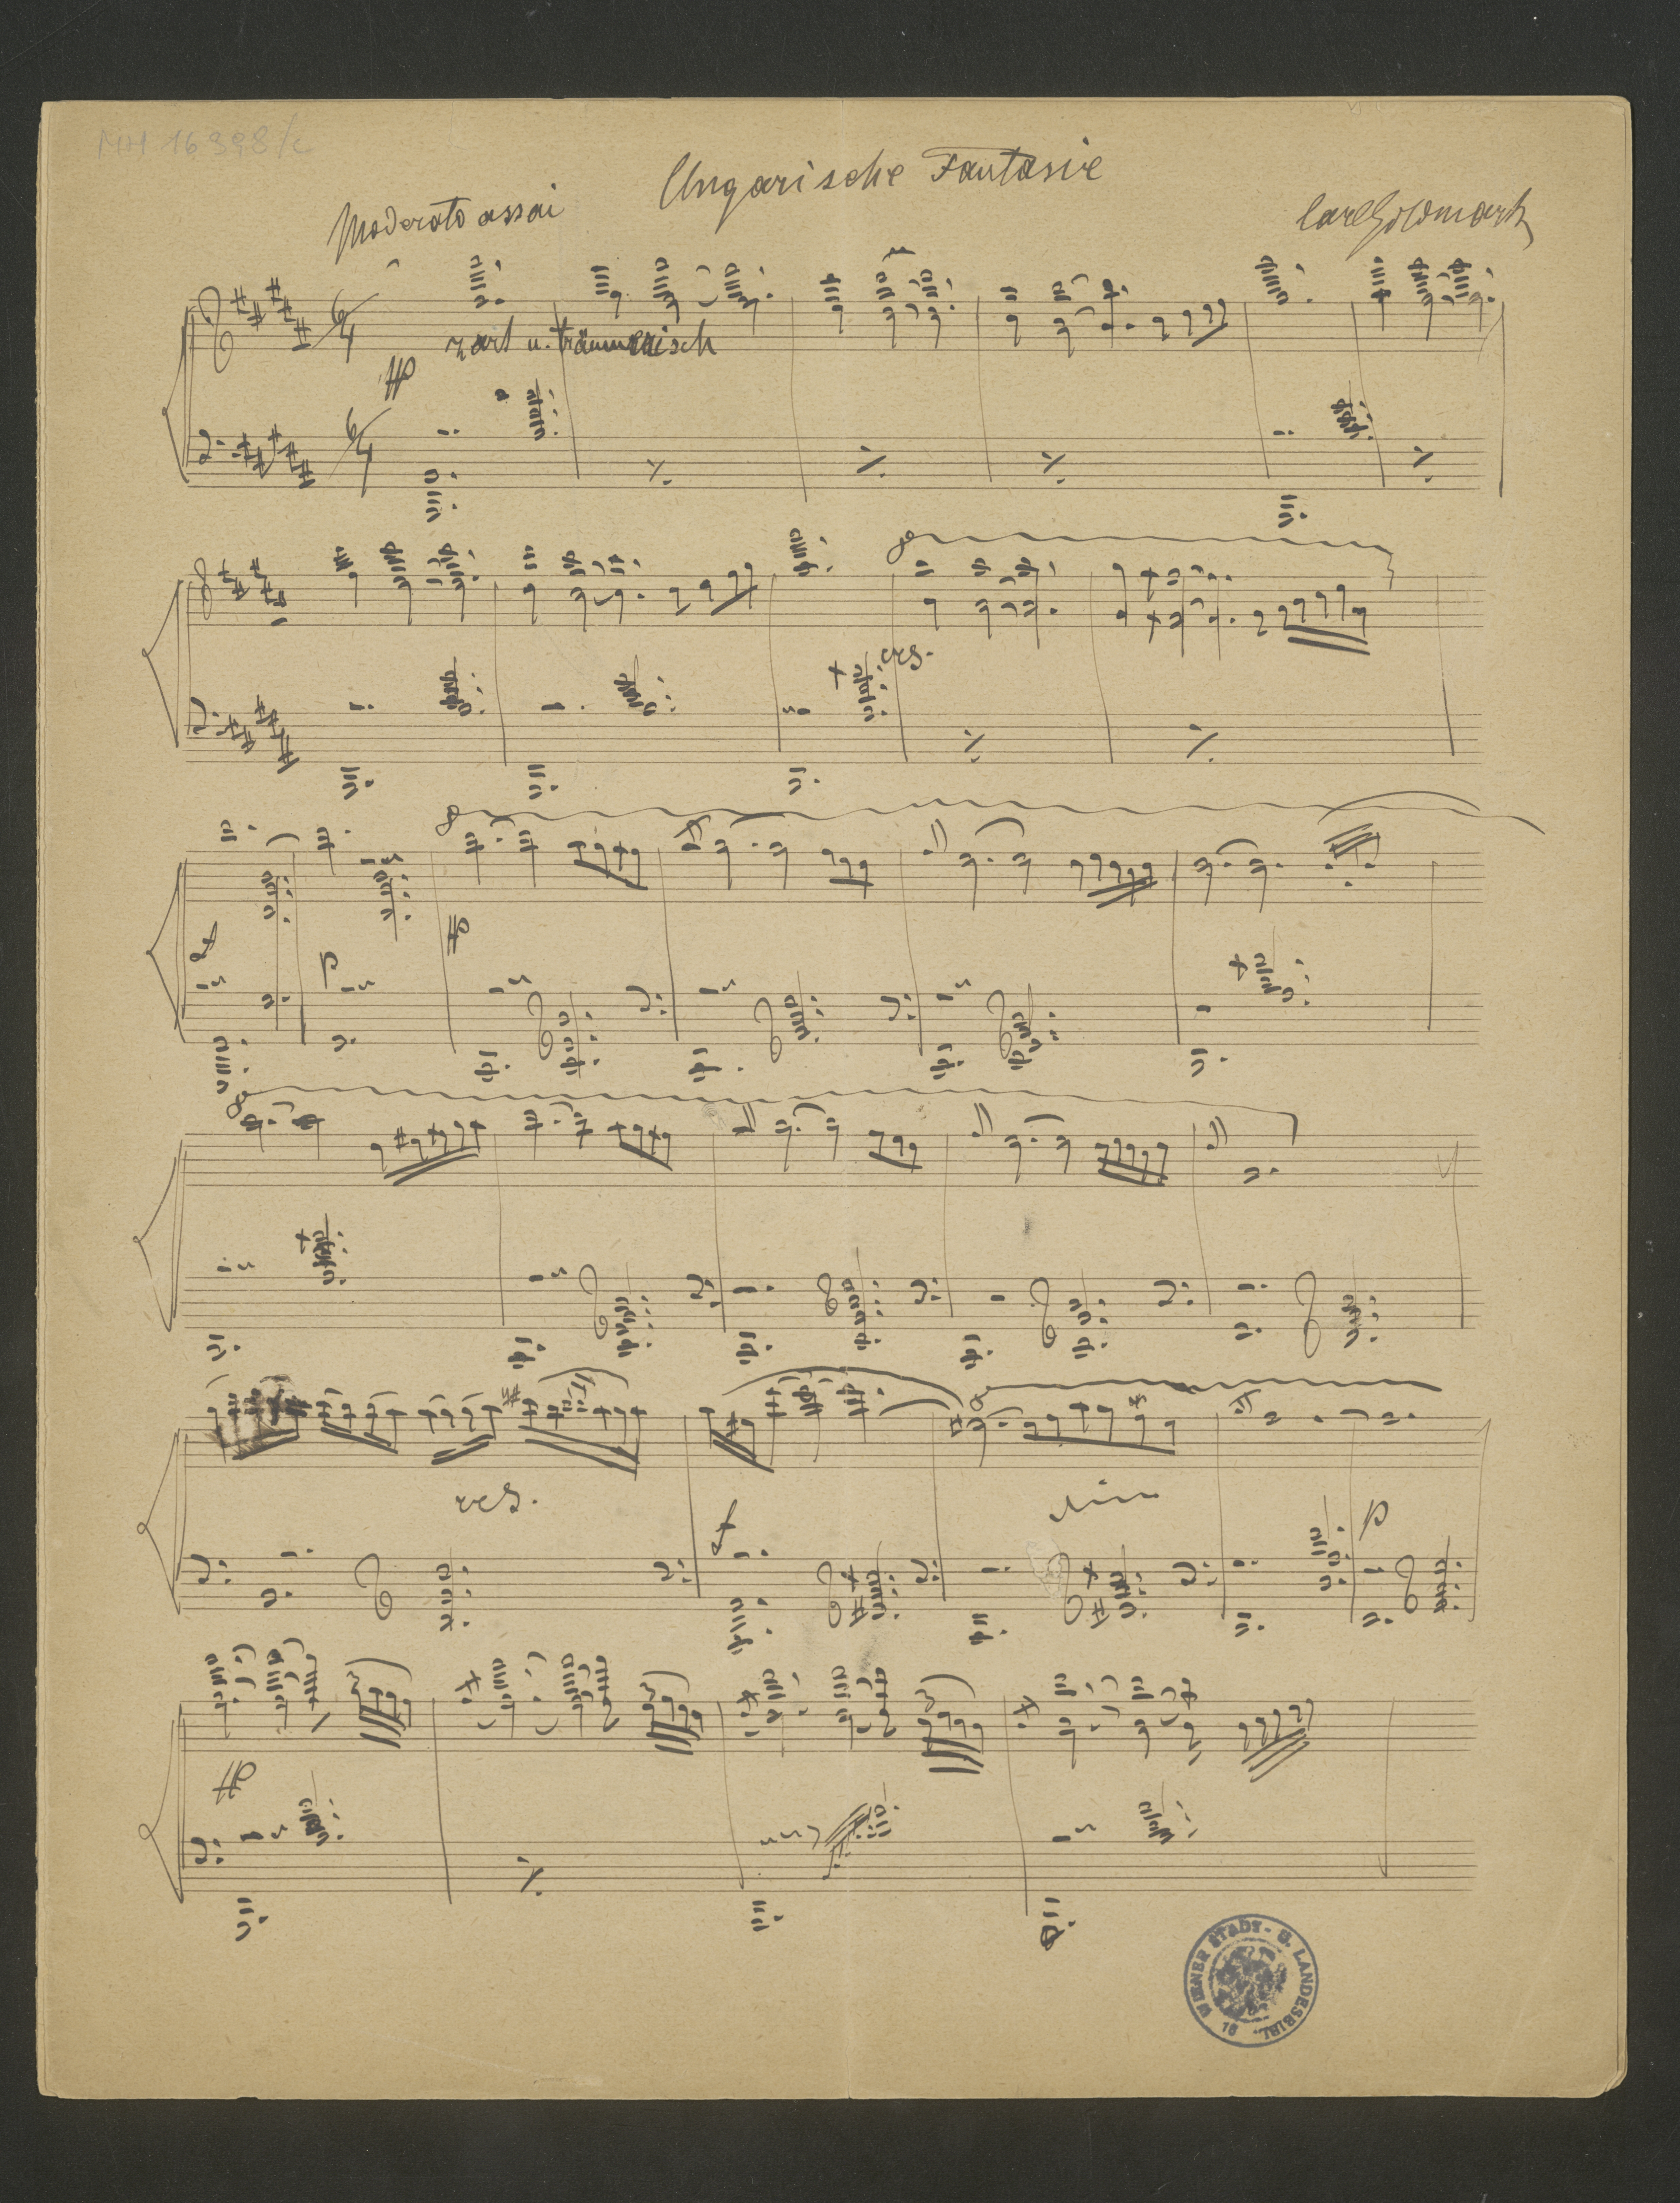 MH 16398/c
Ungarische Fantasie
Moderato assai
Carl Goldmark
6/4
zart u. träumerisch
pp
6/4
8
cres.
8
f
p
pp
8
cres.
f
dim
8
p
pp
WIENER STADT- U. LANDESBIBL.